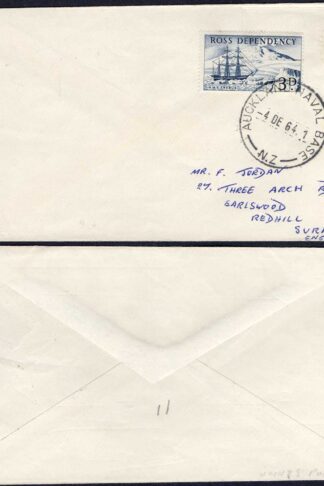 ROSS DEPENDENCY
3D
AUCKLAND NAVAL BASE
-4 DE 64. 1
N.Z
MR. F. JORDAN
27, THREE ARCH
EARLSWOOD
REDHILL
11